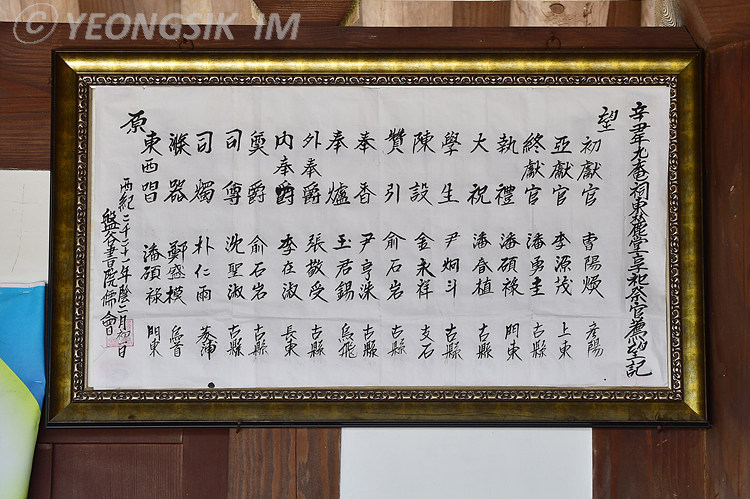 © YEONGSIK IM
辛丑年九庵祠東麓堂享祀祭官薦望記
望
初獻官 陽煥 彦陽
亞獻官 李源茂 上東
終獻官 潘勇圭 古縣
執禮 潘碩祿 門東
大祝 潘春植 古縣
學生 尹炯斗 古縣
陳設 金永祥 支石
贊引 俞石岩 古縣
奉香 尹亨洙 古縣
奉爐 玉君錫 烏飛
外奉爵 張敬受 古縣
內奉爵 李在淑 長東
奠爵 俞石岩 古縣
司尊 沈聖淑 古縣
司燭 朴仁雨 菱浦
滌器 鄭盛模
東西唱 潘碩祿 門東
原
西紀二千二十一年陰二月初日
盤谷書院儒會